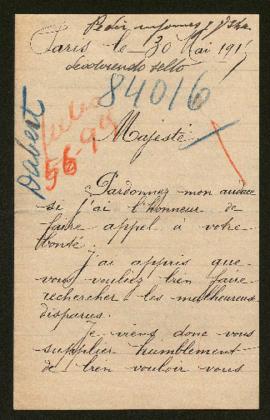 Pedir informes y
Paris le 30 Mai 191
devolviendo sello
84016
Dabert
56-99
Majesté
Pardonnez mon audace
si j'ai l'honneur de
faire appel à votre
bonté.
J'ai appris que
vous vouliez bien faire
rechercher les malheureux
disparus.
Je viens donc vous
supplier humblement
de bien vouloir vous